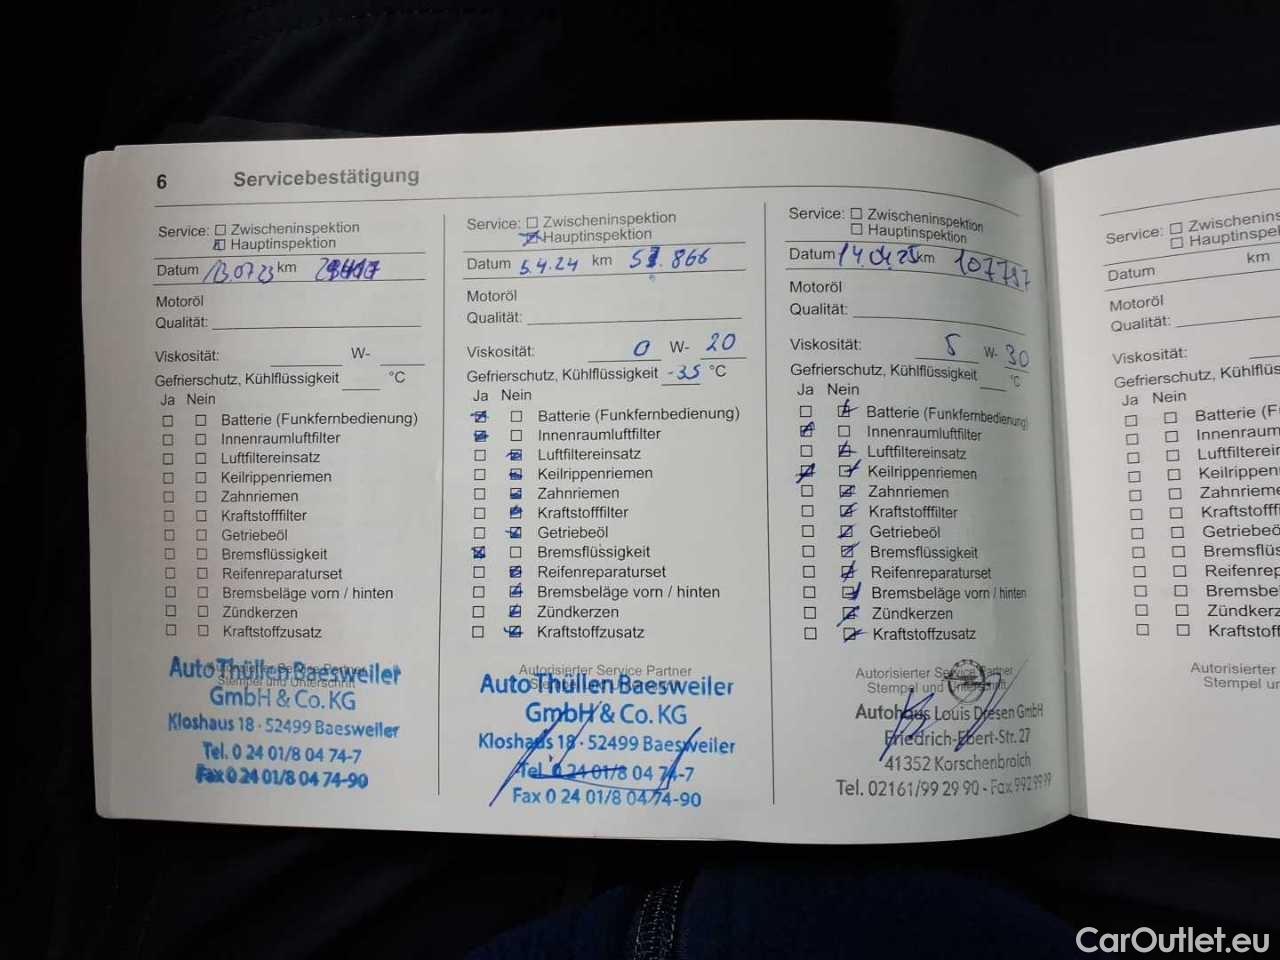 6 Servicebestätigung
Service: Zwischeninspektion
Hauptinspektion
Datum 13.07.23 km
Motoröl
Qualität:
Viskosität: W-
Gefrierschutz, Kühlflüssigkeit °C
Ja Nein
Batterie (Funkfernbedienung)
Innenraumluftfilter
Luftfiltereinsatz
Keilrippenriemen
Zahnriemen
Kraftstofffilter
Getriebeöl
Bremsflüssigkeit
Reifenreparaturset
Bremsbeläge vorn / hinten
Zündkerzen
Kraftstoffzusatz
Autorisierter Service Partner
Stempel und Unterschrift
Auto Thüllen Baesweiler
GmbH & Co. KG
Kloshaus 18 · 52499 Baesweiler
Tel. 0 24 01/8 04 74-7
Fax 0 24 01/8 04 74-90
Service: Zwischeninspektion
Hauptinspektion
Datum 5.4.24 km 51.866
Motoröl
Qualität:
Viskosität: 0 W- 20
Gefrierschutz, Kühlflüssigkeit -35 °C
Ja Nein
Batterie (Funkfernbedienung)
Innenraumluftfilter
Luftfiltereinsatz
Keilrippenriemen
Zahnriemen
Kraftstofffilter
Getriebeöl
Bremsflüssigkeit
Reifenreparaturset
Bremsbeläge vorn / hinten
Zündkerzen
Kraftstoffzusatz
Autorisierter Service Partner
Stempel und Unterschrift
Auto Thüllen Baesweiler
GmbH & Co. KG
Kloshaus 18 · 52499 Baesweiler
Tel. 0 24 01/8 04 74-7
Fax 0 24 01/8 04 74-90
Service: Zwischeninspektion
Hauptinspektion
Datum 14.04.25 km 107797
Motoröl
Qualität:
Viskosität: 5 W- 30
Gefrierschutz, Kühlflüssigkeit °C
Ja Nein
Batterie (Funkfernbedienung)
Innenraumluftfilter
Luftfiltereinsatz
Keilrippenriemen
Zahnriemen
Kraftstofffilter
Getriebeöl
Bremsflüssigkeit
Reifenreparaturset
Bremsbeläge vorn / hinten
Zündkerzen
Kraftstoffzusatz
Autorisierter Service Partner
Stempel und Unterschrift
Autohaus Louis Dresen GmbH
Friedrich-Ebert-Str. 27
41352 Korschenbroich
Tel. 02161/99 29 90 - Fax 992 99 99
Service: Zwischenins
Hauptinspe
Datum km
Motoröl
Qualität:
Viskosität:
Gefrierschutz, Kühlflüss
Ja Nein
Batterie (F
Innenraum
Luftfilterein
Keilrippenr
Zahnrieme
Kraftstofff
Getriebeö
Bremsflüs
Reifenrep
Bremsbe
Zündkerz
Kraftstoff
Autorisierter
Stempel u
CarOutlet.eu